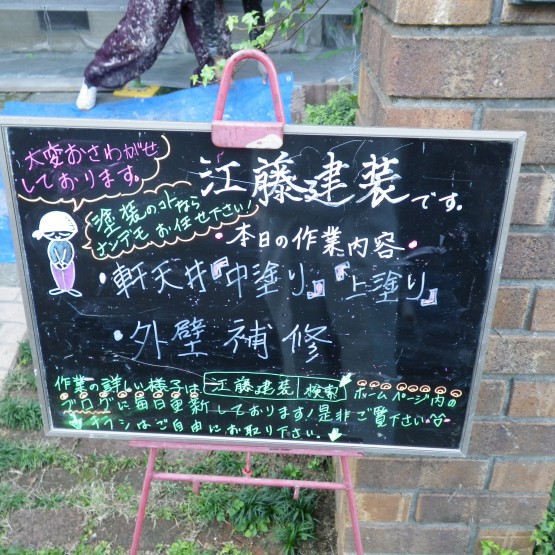 大変おさわがせ
しております。
江藤建装です。
塗装のコトなら
ナンデモお任せ下さい!
・本日の作業内容・
・軒天井『中塗り』『上塗り』
・外壁補修
作業の詳しい様子は 江藤建装 検索 ホームページ内の
ブログに毎日更新しております!是非ご覧下さい
チラシはご自由にお取り下さい。